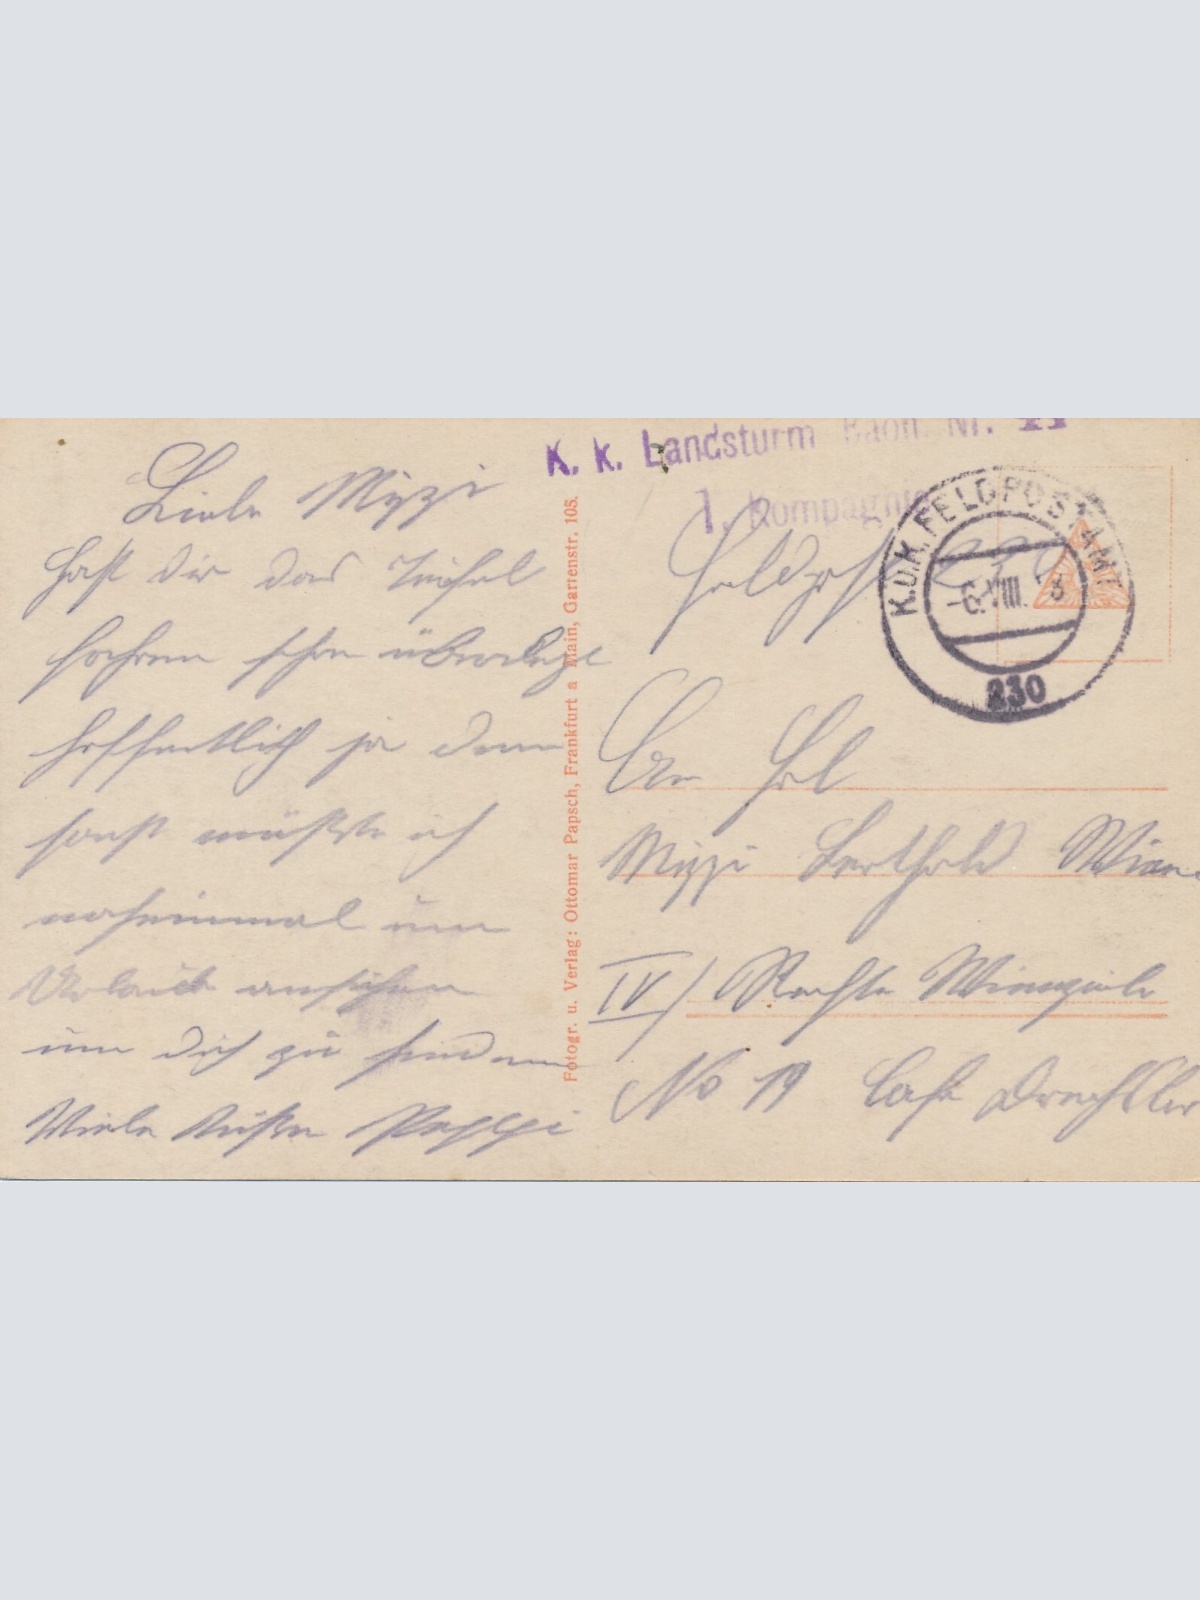 Liebe Mizzi
Hast dir das Teufel
fahren schon überlegt
hoffentlich ja denn
sonst müßte ich
nocheinmal um
Urlaub ansuchen
um dich zu finden
Viele Küße Peppi
Fotogr. u. Verlag: Ottomar Papsch, Frankfurt a Main, Gartenstr. 105.
K. k. Landsturm Baon. Nr.
1. Kompagnie
Feldpost 230
K.U.K. FELDPOSTAMT
-6.VIII.
230
An Frl
Mizzi Berthold Wien
IV/ Rechte Wienzeile
No 19 Cafe Drechsler